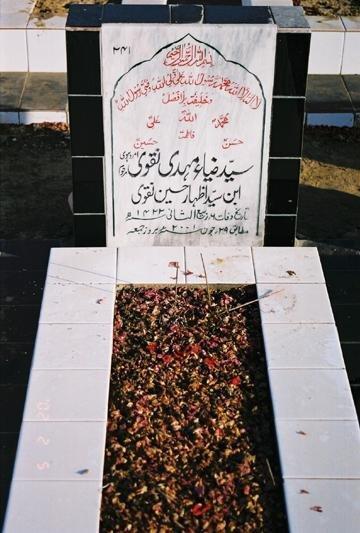 ۲۴۱
بسم اللہ الرحمن الرحیم
لا الہ الا اللہ محمد رسول اللہ علی ولی اللہ وصی رسول اللہ
وخلیفتہ بلا فصل
محمدؐ اللہ علیؑ
فاطمہؑ
حسنؑ حسینؑ
سید ضیاء مہدی نقوی امروہوی مرحوم
ابن سید اظہار حسین نقوی
تاریخ وفات ۶ ربیع الثانی ۱۴۲۲ھ
مطابق ۲۹ جون ۲۰۰۱ء بروز جمعہ